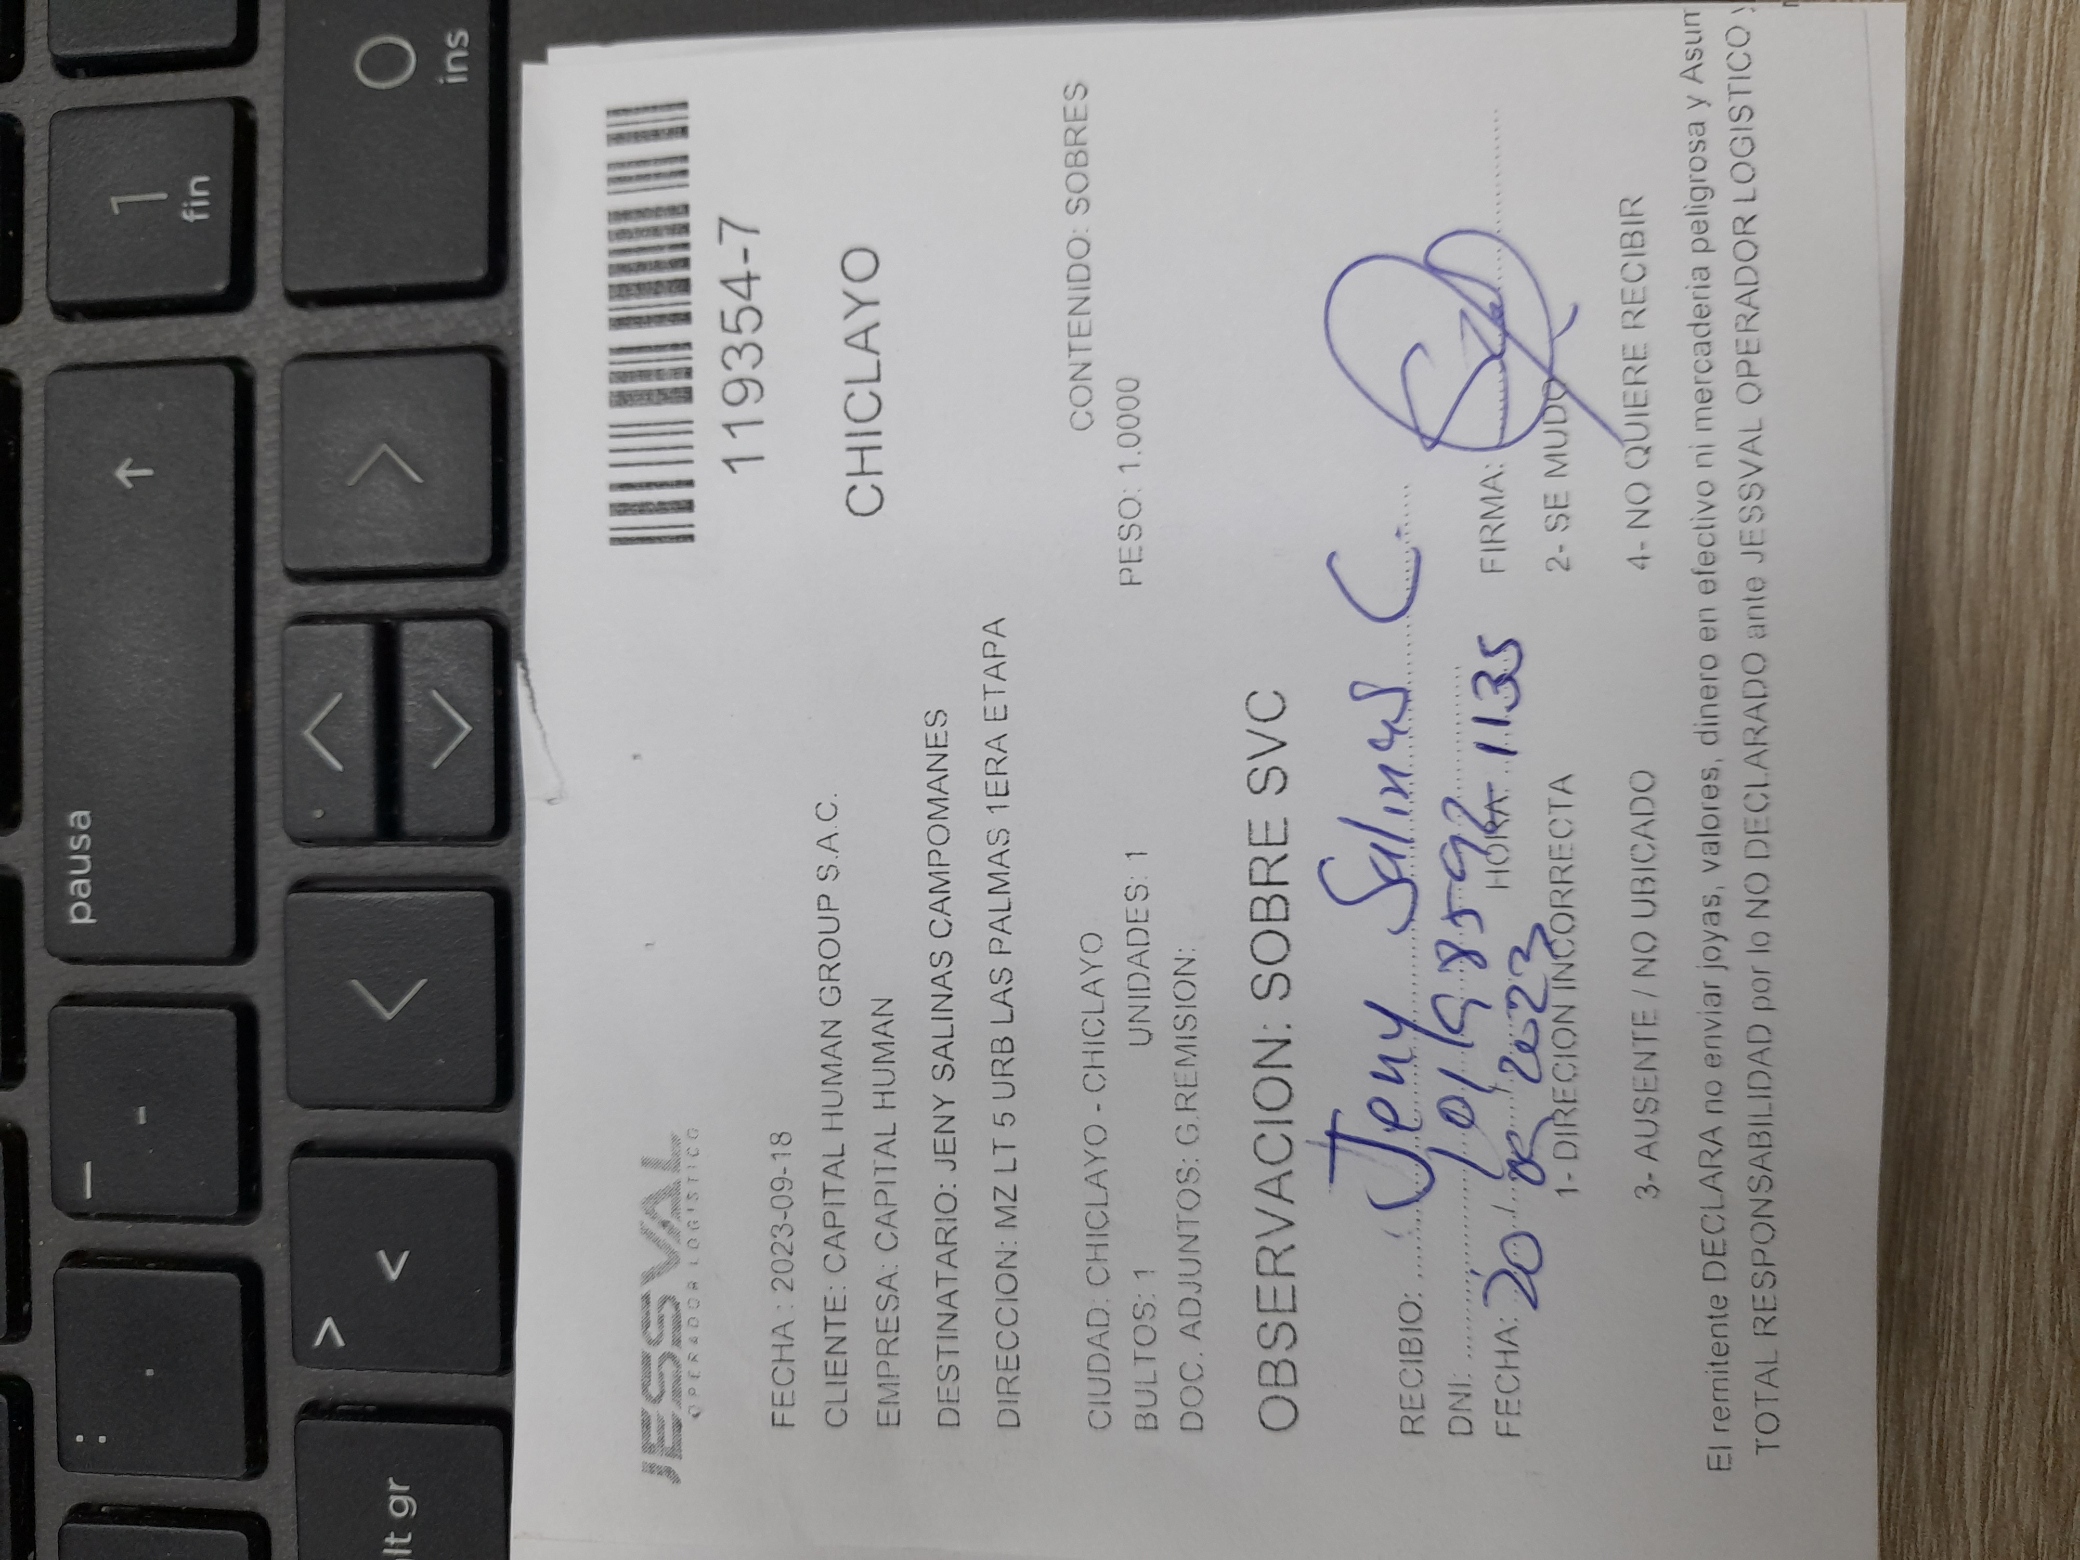 : . — - pausa ↑ 1 fin
lt gr > < < > 0 ins
JESSVAL
OPERADOR LOGISTICO
119354-7
FECHA : 2023-09-18
CLIENTE: CAPITAL HUMAN GROUP S.A.C.
CHICLAYO
EMPRESA: CAPITAL HUMAN
DESTINATARIO: JENY SALINAS CAMPOMANES
DIRECCION: MZ LT 5 URB LAS PALMAS 1ERA ETAPA
CONTENIDO: SOBRES
CIUDAD: CHICLAYO - CHICLAYO
BULTOS: 1 UNIDADES: 1 PESO: 1.0000
DOC. ADJUNTOS: G.REMISION:
OBSERVACION: SOBRE SVC
RECIBIO: Jeny Salinas C.
DNI:
FECHA: 20 / 09 / 2023 HORA: 1135 FIRMA:
1- DIRECION INCORRECTA 2- SE MUDO
3- AUSENTE / NO UBICADO 4- NO QUIERE RECIBIR
El remitente DECLARA no enviar joyas, valores, dinero en efectivo ni mercaderia peligrosa y Asum
TOTAL RESPONSABILIDAD por lo NO DECLARADO ante JESSVAL OPERADOR LOGISTICO y